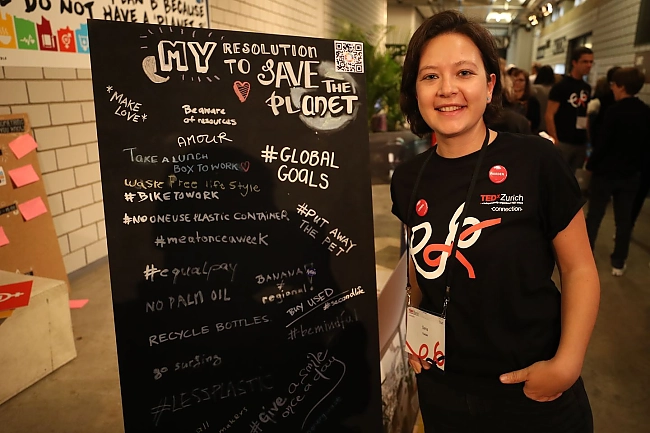 DO NOT
HAVE A PLANET
B BECAUSE
MY RESOLUTION
TO SAVE
THE
PLANET
*MAKE
LOVE*
Be aware
of resources
AMOUR
TAKE A LUNCH
BOX TO WORK
#GLOBAL
GOALS
waste free life style
#BIKETOWORK
#NOONEUSE PLASTIC CONTAINER
#PUT AWAY
THE PET
#meatonceaweek
#equalpay
BANANAS
regional!
NO PALM OIL
BUY USED
#secondlife
RECYCLE BOTTLES
#bemindful
go surfing
#LESSPLASTIC
#Give a smile
once a day
TEDxZurich
connection